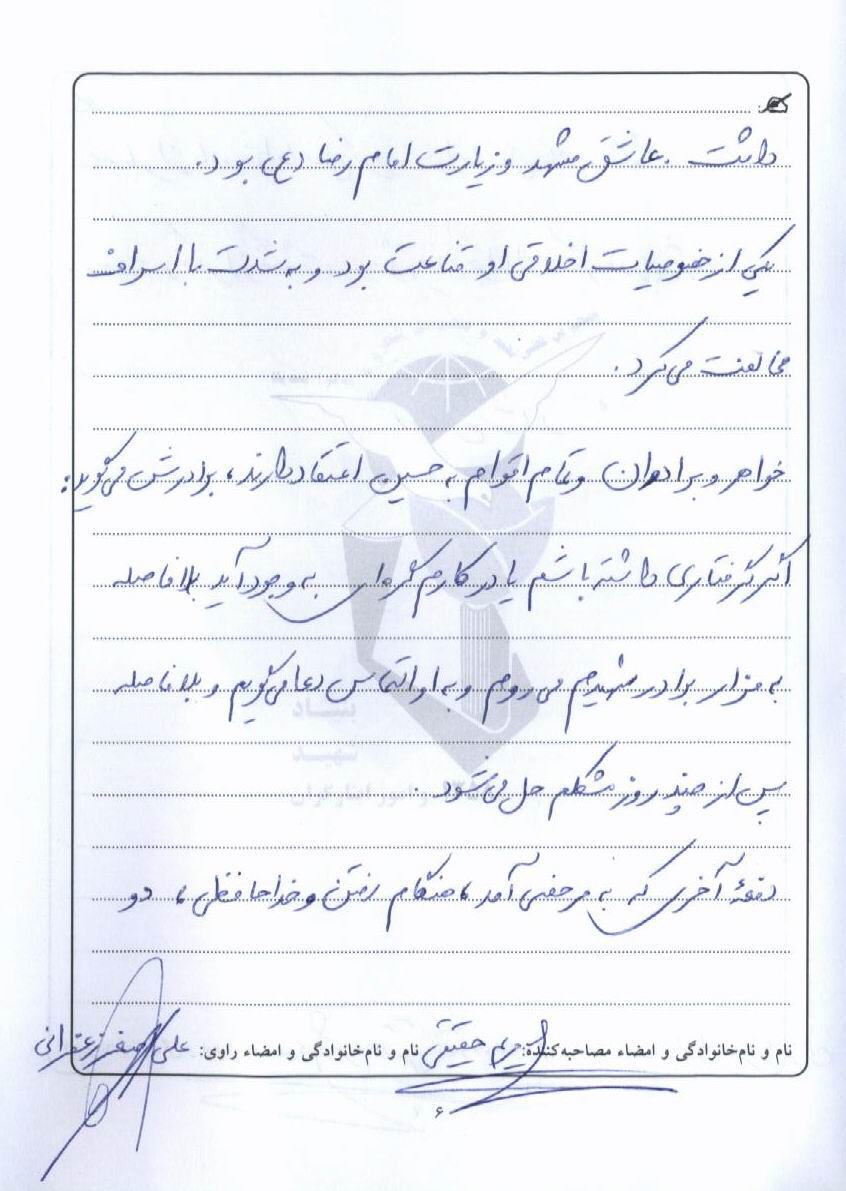 داشت . عاشق مشهد و زیارت امام رضا (ع) بود.
یکی از خصوصیات اخلاقی او قناعت بود و به شدت با اسراف
مخالفت می‌کرد .
خواهر و برادران و تمام اقوام به حسین اعتقاد دارند، برادرش می‌گوید:
اگر گرفتاری داشته باشم یا در کارم گره‌ای به وجود آید بلافاصله
به مزار برادر شهیدم می روم و به او التماس دعا می‌گویم و بلافاصله
پس از چند روز مشکلم حل می‌شود .
دفعهٔ آخری که به مرخصی آمد، هنگام رفتن و خداحافظی ، دو
نام و نام‌خانوادگی و امضاء مصاحبه‌کننده: مریم حقیقی نام و نام‌خانوادگی و امضاء راوی: علی اصغر زعفرانی
۶
بنیاد
شهید
و امور ایثارگران